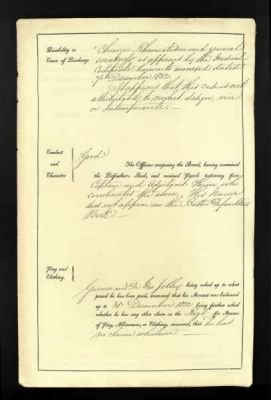 Disability or
Cause of Discharge.
"Chronic Rheumatism and general
as appears by the Medical
Certificate hereunto annexed dated
7th December 1852.
It appears that this case is not
attributable to neglect, design, vice
or intemperance."
Conduct
and
Character
Good.
The Officers composing the Board, having examined
the Defaulter's Book, and received Parole testimony from
Captain and Adjutant who
corroborates the above. His Name
does not appear in the Defaulters
Book.
Pay and
Clothing.
being asked up to what
period he has been paid, answered that his Account was balanced
up to 31st December 1852 being further asked
whether he has any other claim on the Regt for Arrears
of Pay, Allowances, or Clothing, answered, that he has
no claim whatever